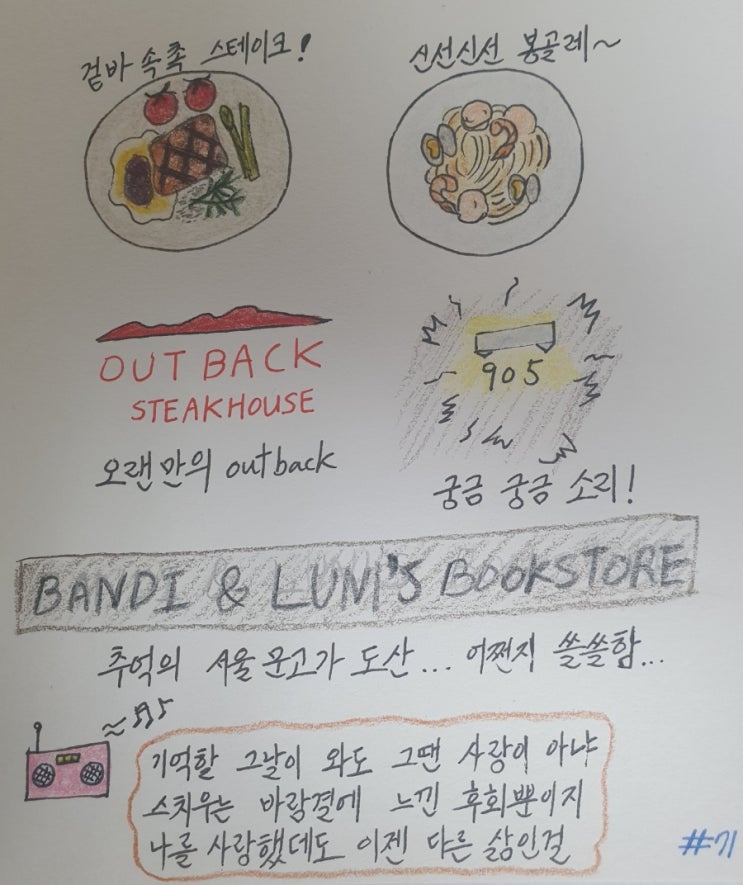 겉바 속촉 스테이크!
신선신선 봉골레~
OUTBACK
STEAKHOUSE
오랜만의 outback
905
궁금 궁금 소리!
BANDI & LUNI'S BOOKSTORE
추억의 서울문고가 도산... 어쩐지 쓸쓸함...
기억할 그날이 와도 그땐 사랑이 아냐
스치우는 바람결에 느낀 후회뿐이지
나를 사랑했데도 이젠 다른 삶인걸
#71